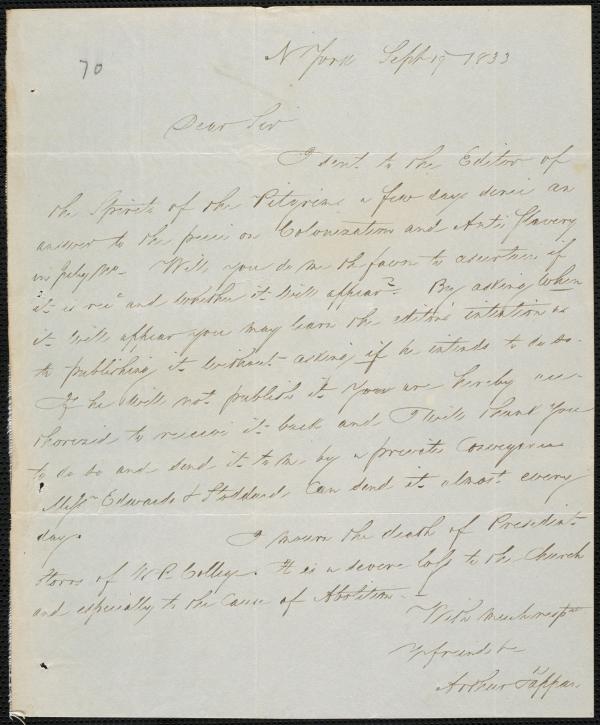 70
N York Sept 19 1833
Dear Sir
I sent to the Editor of
the Spirit of the Pilgrims a few days since an
answer to the piece on Colonization and Anti Slavery
in July No. Will you do me the favor to ascertain if
it is recd and whether it will appear? By asking when
it will appear you may learn the editor's intention as
to publishing it without asking if he intends to do so.
If he will not publish it you are hereby au-
thorized to receive it back and I will thank you
to do so and send it to me by a private conveyance
Messrs Edwards & Stoddard can send it almost every
day. I mourn the death of President
Storrs of W. R. College. It is a severe loss to the Church
and especially to the cause of Abolition.
With much respt
Yr friend &c
Arthur Tappan